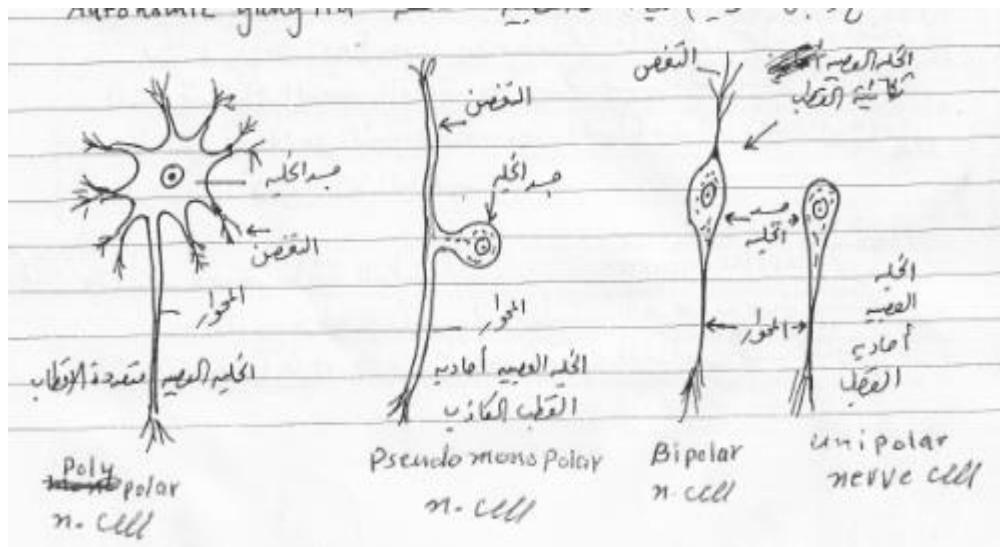 Autonomic gangila
التغصن
جسد الخليه
التغصن
المحوار
الخليه العصبيه متعددة الاقطاب
Poly polar
n. cell
التغصن
جسد الخليه
المحوار
الخليه العصبيه أحاديه
القطب الكاذب
Pseudomonopolar
n. cell
الخليه العصبيه
ثنائية القطب
جسد
الخليه
المحوار
Bipolar
n. cell
الخليه
العصبيه
أحاديه
القطب
unipolar
nerve cell